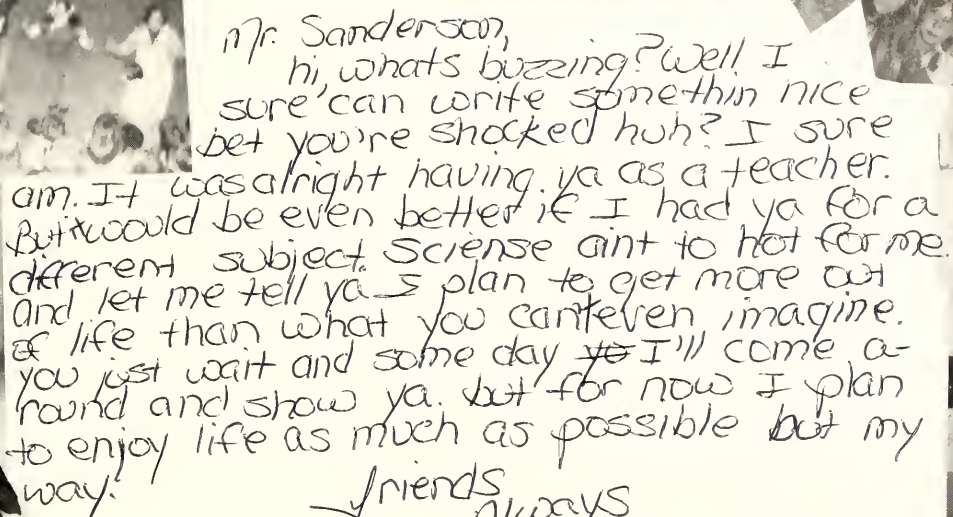 Mr. Sanderson,
hi, whats buzzing? Well I
sure can write somethin nice
bet you're shocked huh? I sure
am. It was alright having ya as a teacher.
But it would be even better if I had ya for a
different subject. Sciense aint to hot for me.
And let me tell ya I plan to get more out
of life than what you cant even imagine.
you just wait and some day yo I'll come a-
round and show ya. but for now I plan
to enjoy life as much as possible but my
way!
friends
always